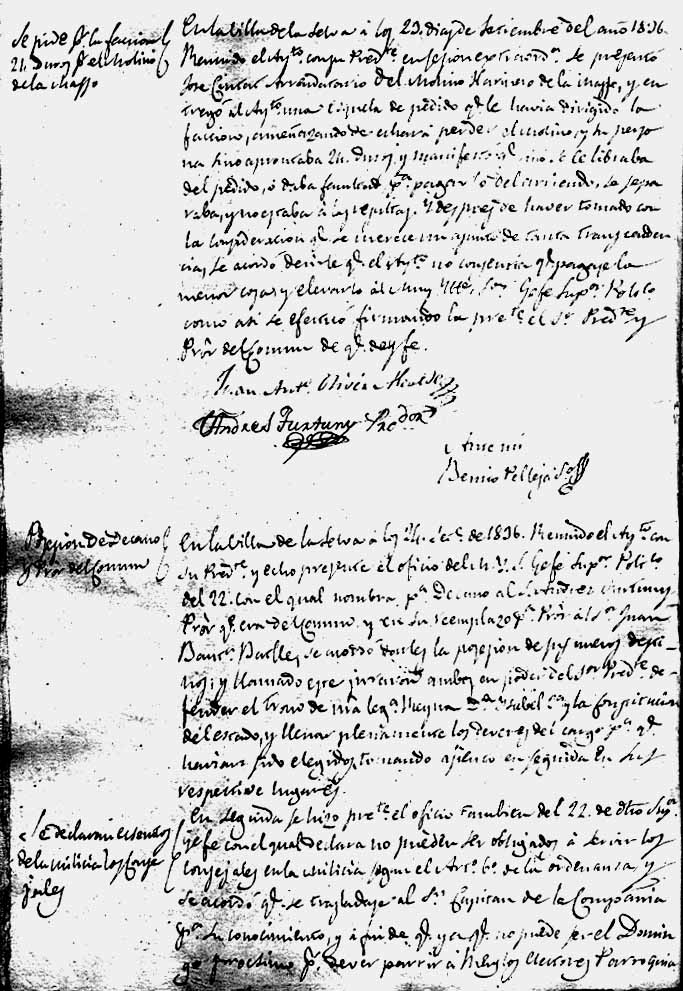 Se pide pr. la faccion
24. Duros pr. el Molino
de la Masso
En la Villa de la Selva á los 23. dias de Setiembre del año 1836.
Reunido el Aytto. con su Presdte. en sesion extraordra. Se presentó
Jose Arrandatario del Molino Harinero de la Masso, y en
tregó al Aytto. una Esquela de pedido qe. le havia dirigido la
faccion, amenazando de echar á perder el molino, y su perso
na sino aprontaba 24. Duros, y manifestó qe. sino se le libraba
del pedido, ó daba facultad pa. pagarlo del arriendo, se sepa
raba, y no estaba á las resultas. Y despues de haver tomado con
la consideracion qe. se merece un asunto de tanta transcenden
cia, se acordó decirle qe. el Aytto. no consentia qe. pagase la
menor cosa, y elevarlo al Muy Iltre. Sor. Gefe Supor. Politco.
como asi se efectuó firmando la prete. el Sr. Presdte. y
Prôr del Comun de qe. doy fe.
Juan Anto. Olivér Alcalde
Andres Fortuny Prcdor.
Ante mi
Benito Pellejá So.
Posesion de Decano
y Prôr del Comun
En la Villa de la Selva á los 24. Sbre. de 1836. Reunido el Aytto. con
su Presdte. y echo presente el oficio del M. Y. S. Gefe Supor. Politco.
del 22. con el qual nombra pa. Decano al Sr. Andres Fortuny
Prôr qe. era del Comun, y en su reemplazo pa. Prôr á Dn. Juan
Bautta. Batlle, se acordó darles la posesion de sus nuevos desti-
nos; y llamado este juraron ambos en poder del Sor. Presdte. de-
fender el trono de nra. legma. Reyna Da. Ysabel 2a. y la Constitucion
del estado, y llenar plenamente los deveres del cargo pa. qe.
havian sido elegidos, tomando asiento en seguida en sus
respective lugares.
Se declaran esentos
de la milicia los Conse
jales
En seguida se hizo prete. el oficio tambien del 22. de dho. Supor.
Gefe con el qual declara no pueden ser obligados á servir los
Consejales en la Milicia segun el Arto. 6o. de la ordenanza, y
se acordó qe. se trasladase al Sr. Capitan de la Compañia
pa. su conocimiento, y á fin de qe. ya qe. no puede ser el Domin
go proctimo pr. dever partir á Reus los electores Parroquia